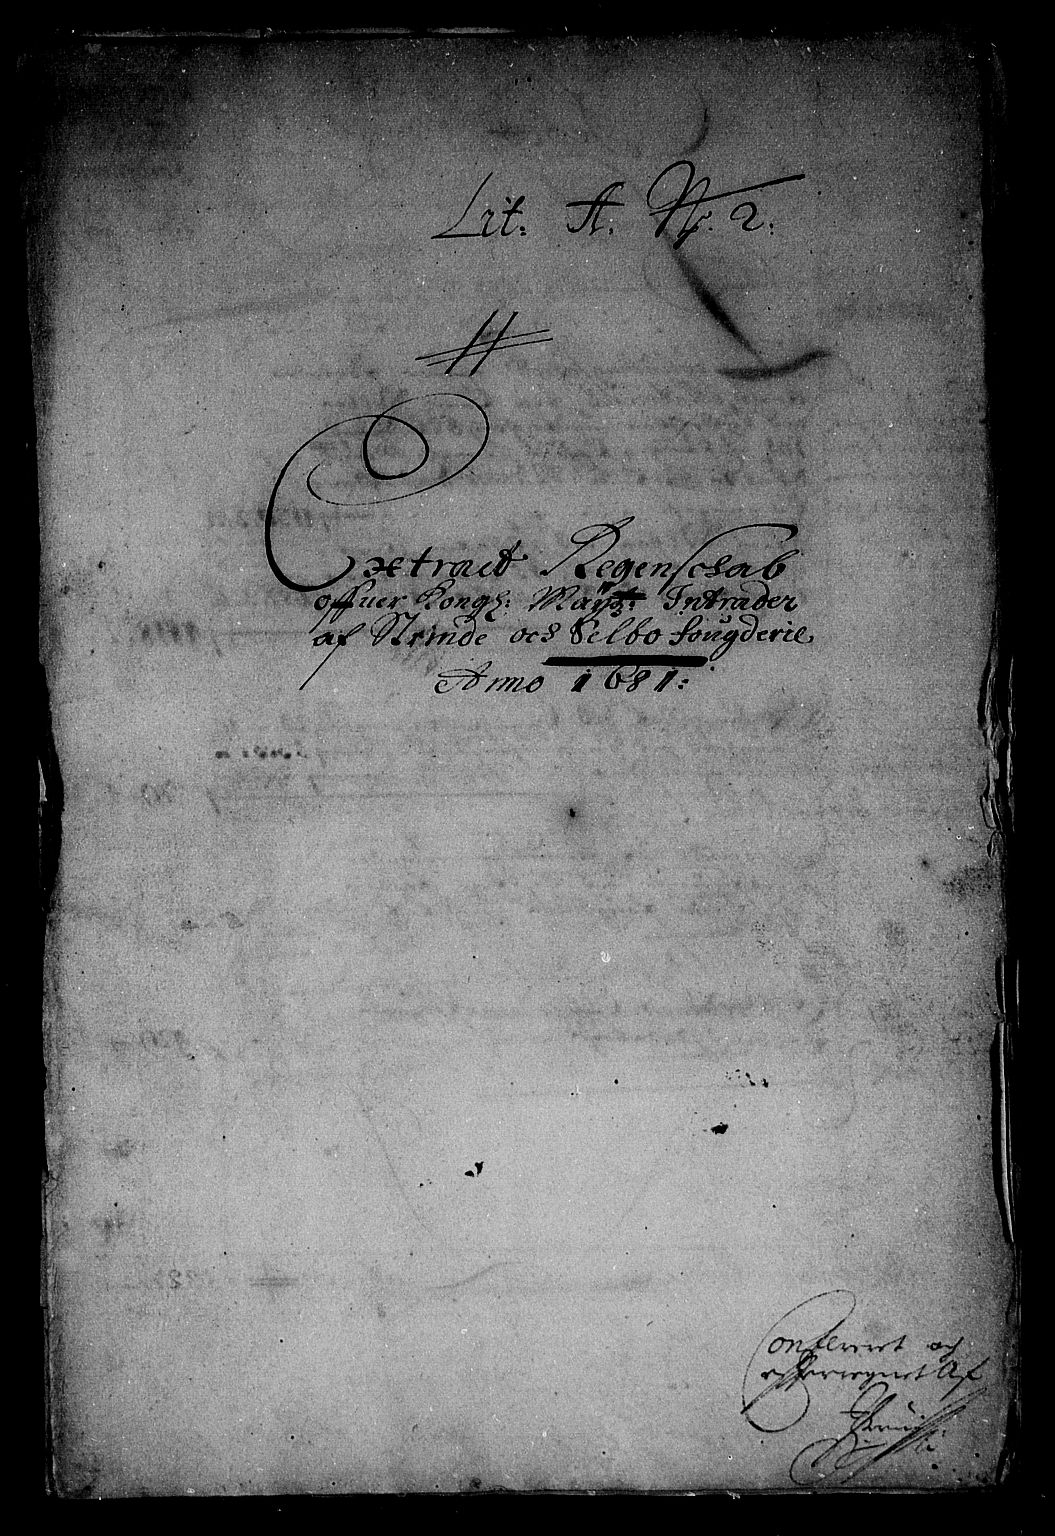 Lit: A. No. 2.
Extract Regenschab
offuer Kongl: Maytz: Intrader
af Strinde och Selbo fougderie,
Anno 1681:
Confereret og
efterregnet Af